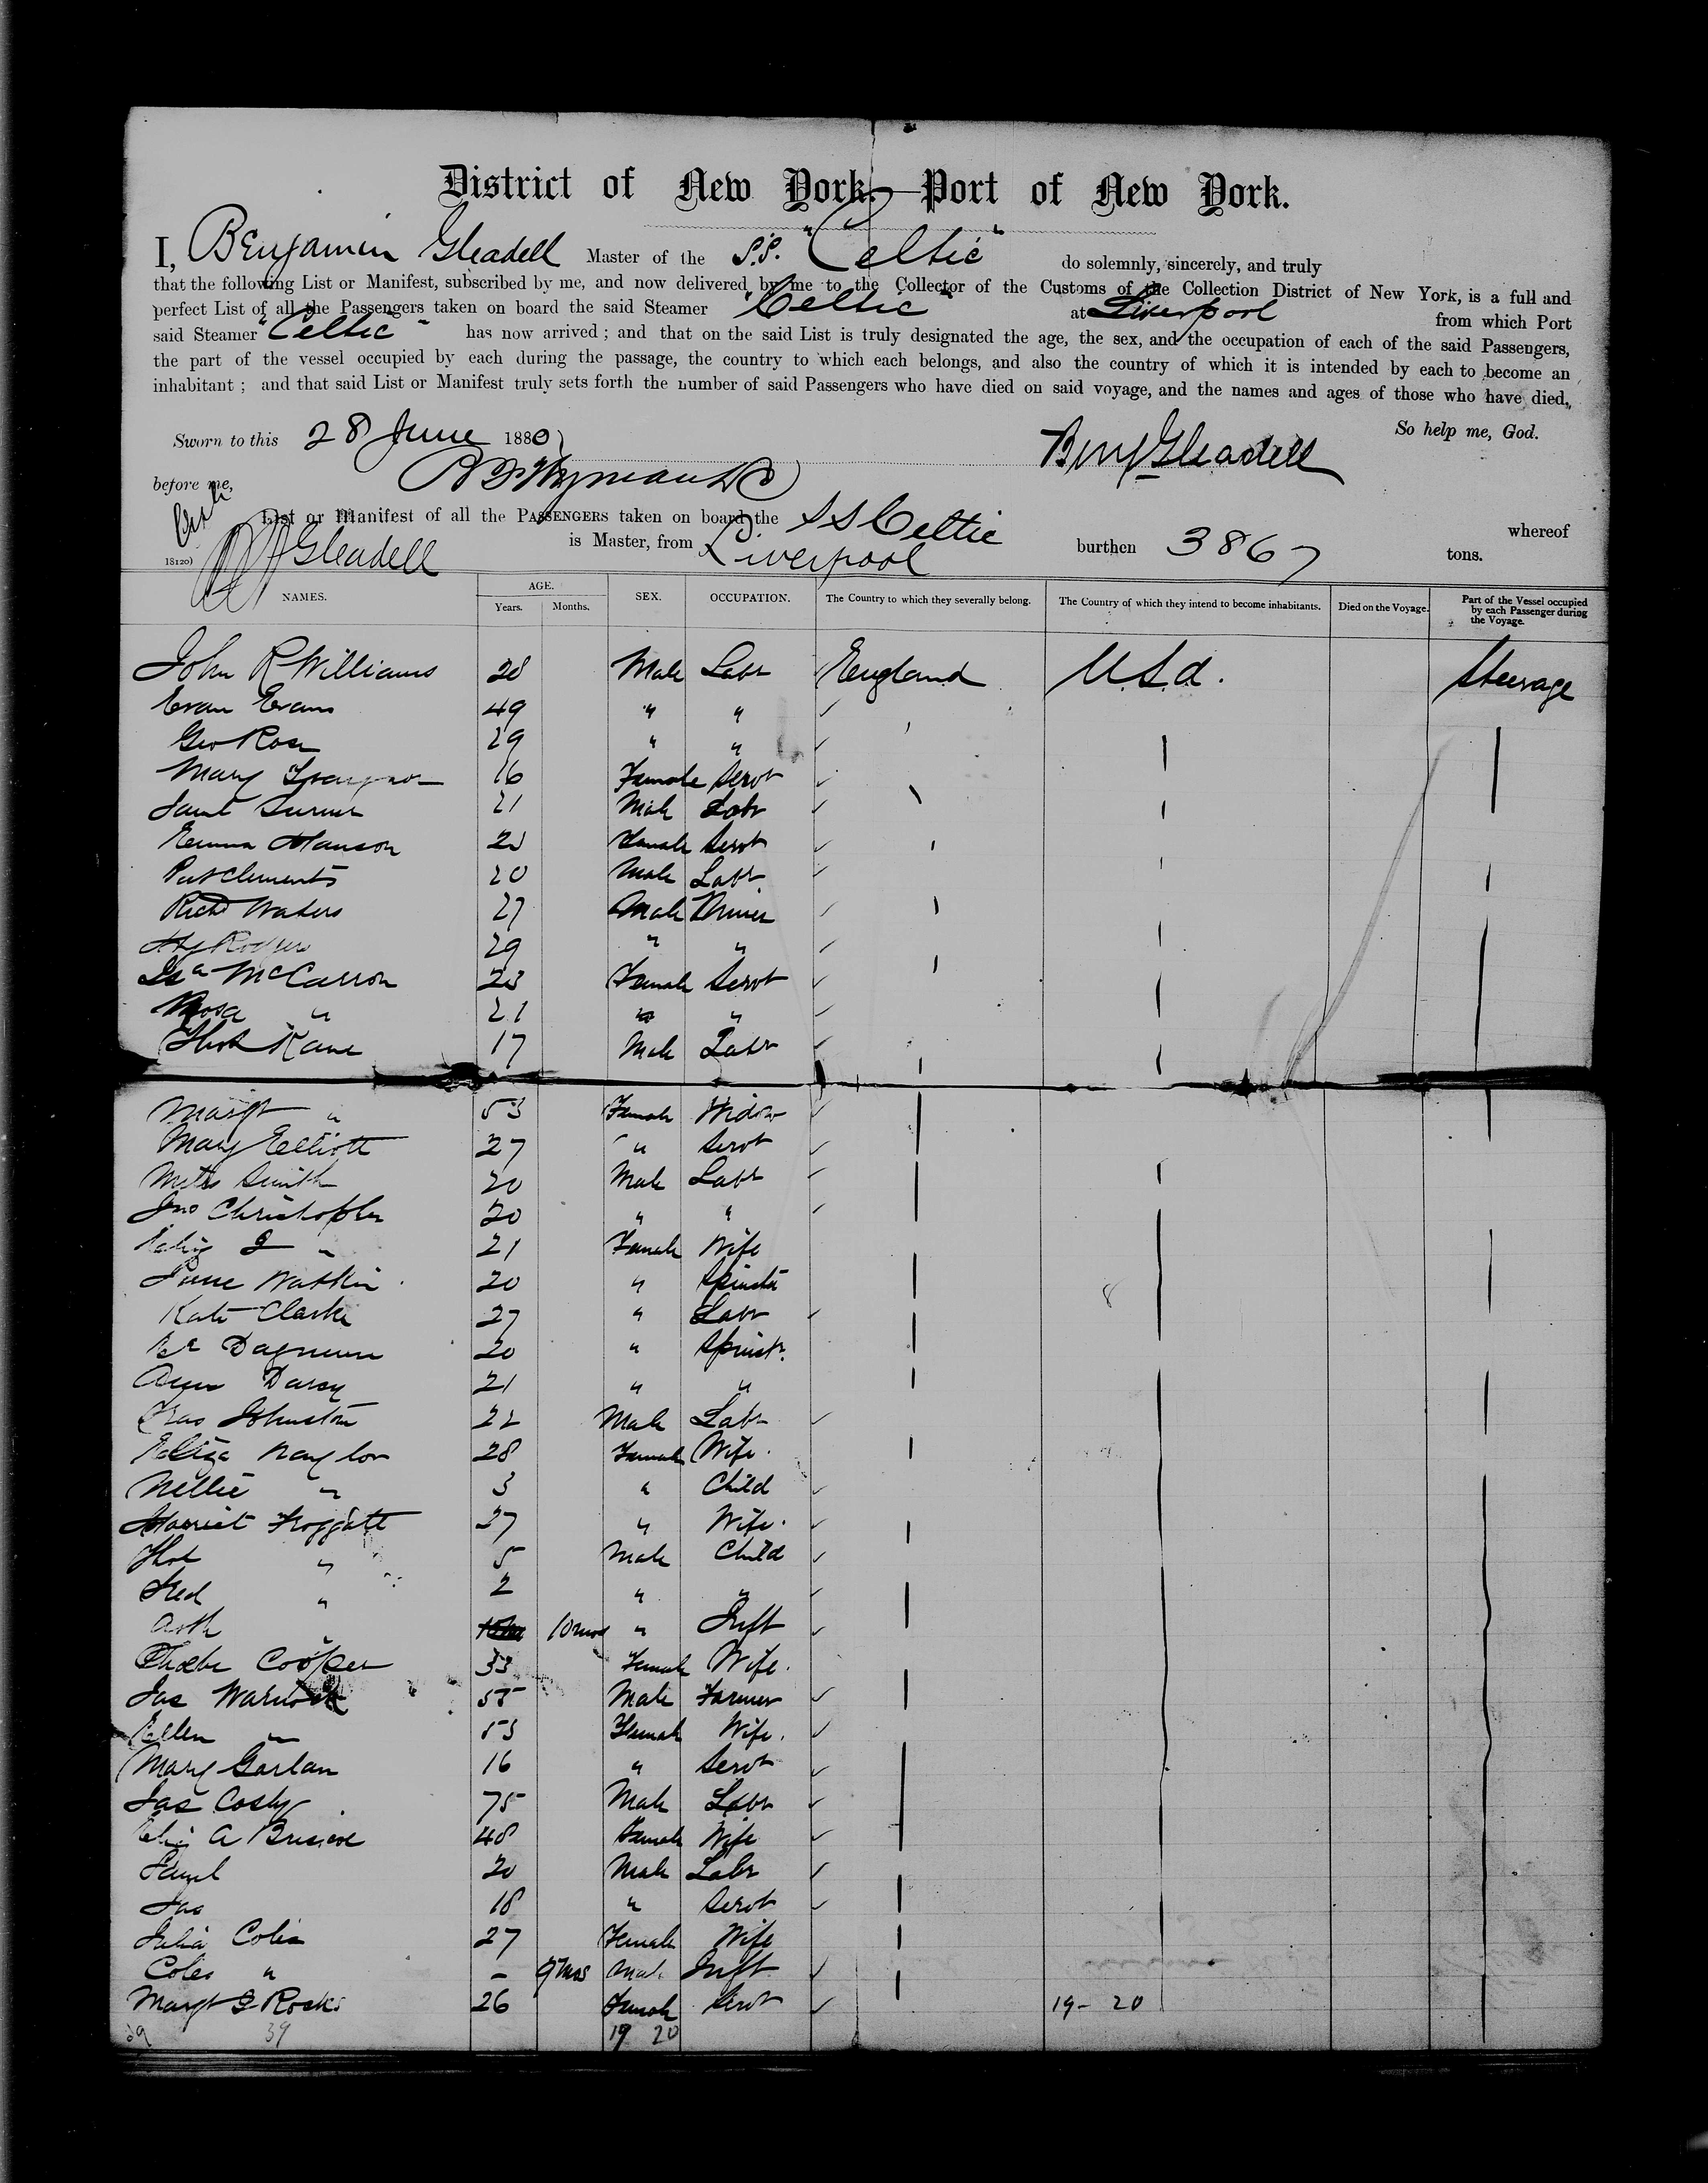 District of New York, Port of New York.
I, Benjamin Gleadell Master of the S.S. "Celtic" do solemnly, sincerely, and truly
that the following List or Manifest, subscribed by me, and now delivered by me to the Collector of the Customs of the Collection District of New York, is a full and
perfect List of all the Passengers taken on board the said Steamer "Celtic" at Liverpool from which Port
said Steamer "Celtic" has now arrived; and that on the said List is truly designated the age, the sex, and the occupation of each of the said Passengers,
the part of the vessel occupied by each during the passage, the country to which each belongs, and also the country of which it is intended by each to become an
inhabitant; and that said List or Manifest truly sets forth the number of said Passengers who have died on said voyage, and the names and ages of those who have died.
So help me, God.
Sworn to this 28 June 1880
Benj Gleadell
before me,
List or Manifest of all the PASSENGERS taken on board the S S Celtic whereof
18120) Gleadell is Master, from Liverpool burthen 3867 tons.
NAMES. AGE. Years. Months. SEX. OCCUPATION. The Country to which they severally belong. The Country of which they intend to become inhabitants. Died on the Voyage. Part of the Vessel occupied by each Passenger during the Voyage.
John R Williams 28 Male Labr England U.S.A. Steerage
Evan Evans 49 " "
Geo Rose 29 " "
Mary 16 Female Servt
Turner 21 Male Labr
Emma Hanson Female Servt
Pat Clements 20 Male Labr
Richd Waters 27 Male Miner
Hy Rodgers 29 " "
Isa McCarron 23 Female Servt
Rosa " 21 " "
Thos Kane 17 Male Labr
Margt " 53 Female Widow
Mary Elliott 27 " Servt
Smith 20 Male Labr
Jno Christopher 20 " "
" 21 Female Wife
Jane Watkin 20 " Spinster
Kate Clarke 27 " Labr
20 " Spinstr
Ann Darcy 21 " "
Fras Johnston 22 Male Labr
Eliza Naylor 28 Female Wife
Nellie " 3 " Child
Harriet Froggatt 27 " Wife
Thos " 5 Male Child
Fred " 2 " "
Arth " 10 mos " Inft
Phoebe Cooper 33 Female Wife
Jas Warnock 55 Male Farmer
Ellen " 53 Female Wife
Mary Garlan 16 " Servt
Jas Cosby 75 Male Labr
Eliz A Briscoe 48 Female Wife
Saml 20 Male Labr
Jas 18 " Servt
Julia Coles 27 Female Wife
Coles " - 9 mos Male Inft
Margt 26 Female Servt 19 - 20
39 19 20